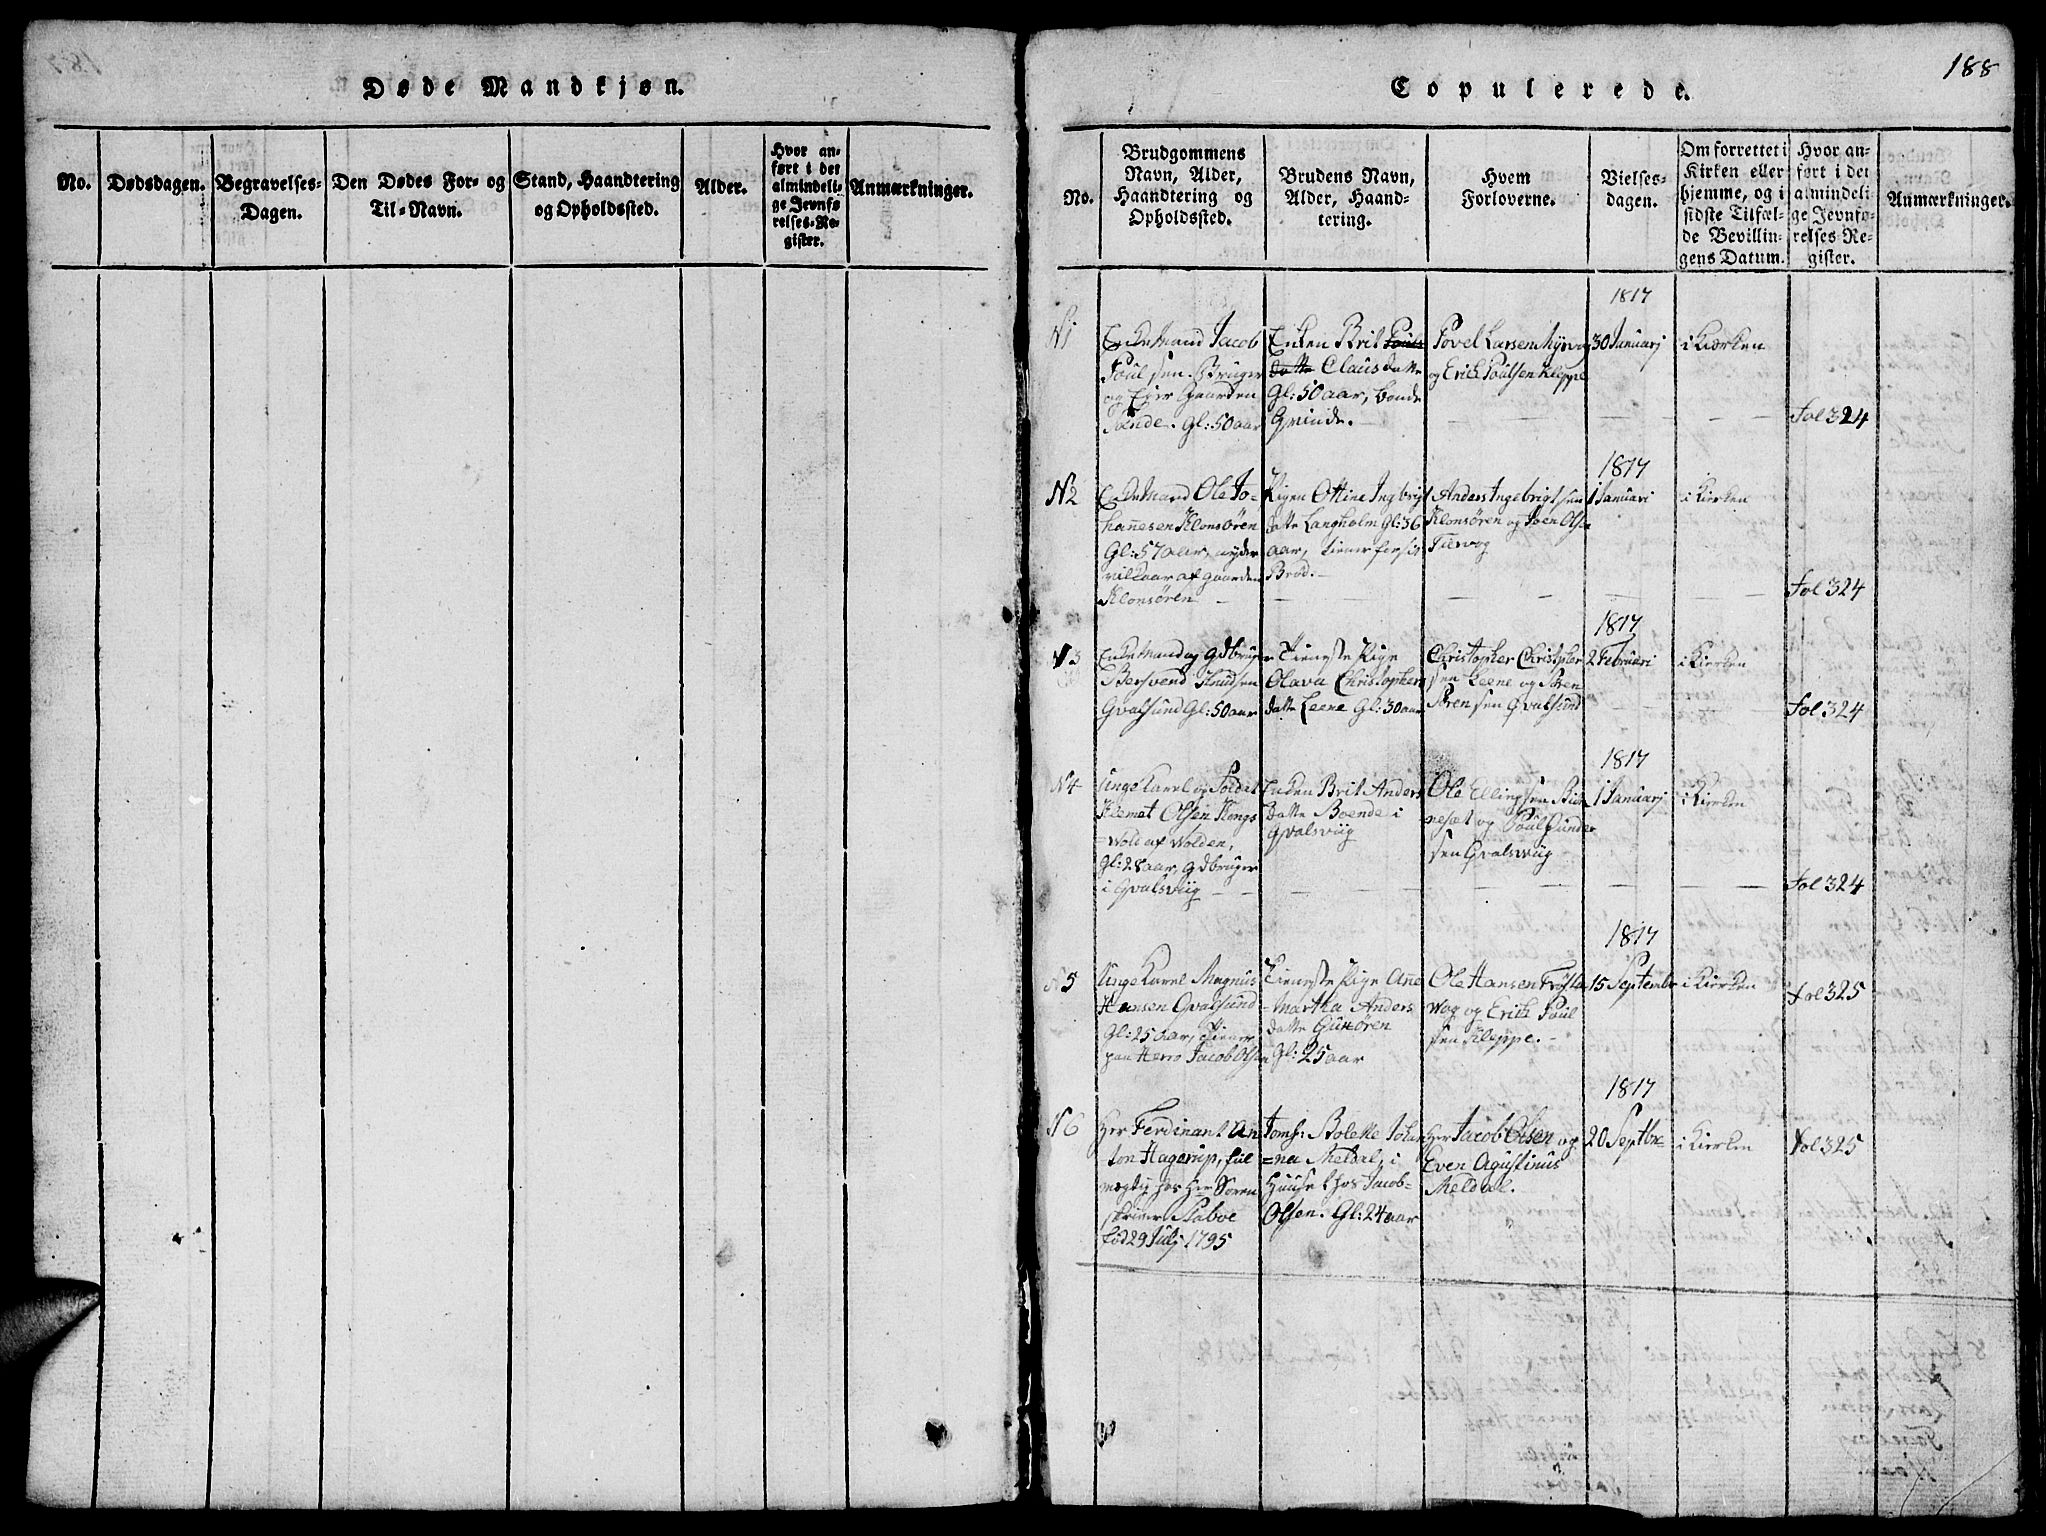 Døde Mandkjøn.
No.
Dødsdagen.
Begravelses-
Dagen.
Den Dødes For- og
Til-Navn.
Stand, Haandtering
og Opholdssted.
Alder.
Hvor an-
ført i det
almindeli-
ge Jevnfø
relses-Re-
gister.
Anmærkninger.
188
Copulerede.
No.
Brudgommens
Navn, Alder,
Haandtering og
Opholdssted.
Brudens Navn,
Alder, Haand-
tering.
Hvem
Forloverne.
Vielses-
dagen.
Om forrettet i
Kirken eller
hjemme, og i
sidste Tilfæl-
de Bevillin-
gens Datum.
Hvor an-
ført i det
almindeli-
ge Jevnfø-
relses-Re-
gister.
Anmærkninger.
N1
Enkemand Jacob
Poulsen. Bruger
og Ejer Gaarden
Sande. Gl: 50 aar
Enken Brit Pouls
datte Clausdatte
Gl: 50 aar, boende
Grinde.
Povel Larsen Myrvog
og Erik Poulsen Kleppe
1817
30 Januarj
i Kierken
Fol 324
N2
Enkemand Ole Jo-
hannesen Klonsören
Gl: 57 aar, nyder
vilkaar af gaarden
Klonsören
Pigen Ottine Ingbrigt
datte Langholm Gl: 36
aar, tiener for sit
Brød.
Anders Ingebrigtsen
Klonsören og Joen Olsen
1817
1 Januari
i Kierken
Fol 324
N3
Enkemand og Gdbruger
Bersvend Knudsen
Gvalsund Gl: 50 aar
Tieneste Pige
Olava Christophers
datte Leene Gl: 30 aar
Christopher Christopher
sen Leene og Sören
Sörensen Qvalsund
1817
2 Februari
i Kierken
Fol 324
N4
Unge Karel og Soldat
Klemet Olsen Kongs
Wold af Wolden,
Gl: 28 aar, gdbruger
i Qvalsviig
Enken Brit Anders
datte Boende i
Qvalsviig
Ole Ellingsen
og Poul Gunder
sen Qvalsviig
1817
1 Januarj
i Kierken
Fol 324
N5
Unge Karel Magnus
Hansen Qvalsund
Gl: 25 aar, tiener
paa Herrö Jacob Olsen
Tieneste Pige Ane
Martha Anders
datte Gunören
Gl: 25 aar
Ole Hansen
Wog og Erik Poul
sen Kleppe.
1817
15 Septembr
i Kierken
Fol 325
N6
Her Ferdinant An
ton Hagerup, ful
mægtig hos Hr Soren
skriver Stabve
föd 29 Julj 1795
Jomf: Bolette Johan
=na Meldal, i
Huuset hos Jacob
Olsen. Gl: 24 aar
Her Jacob Olsen og
Even Agustinus
Meldal.
1817
20 Septbr
i Kierken
Fol 325